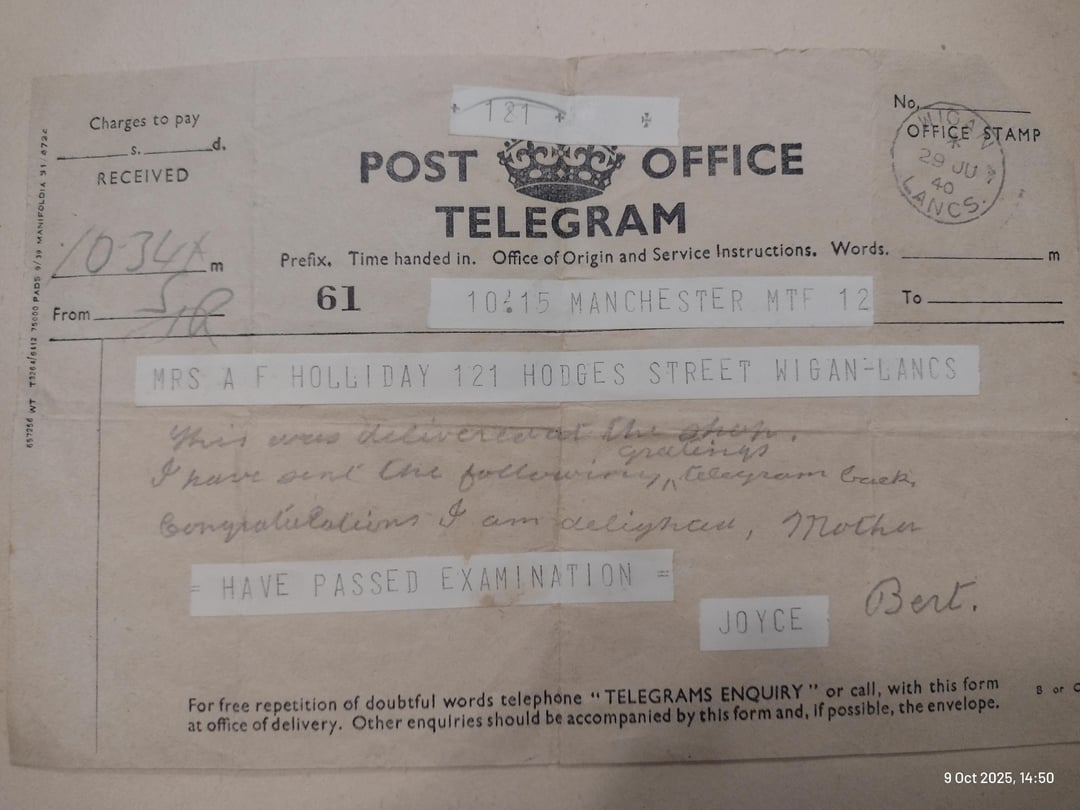 121
No.
OFFICE STAMP
WIGAN
29 JU
40
LANCS.
Charges to pay
s. d.
RECEIVED
POST OFFICE
TELEGRAM
10.34
m
Prefix. Time handed in. Office of Origin and Service Instructions. Words.
m
From
61
10.15 MANCHESTER MTF 12
To
MRS A F HOLLIDAY 121 HODGES STREET WIGAN-LANCS
This was delivered at the shop.
gratings
I have sent the following telegram back,
Congratulations I am delighted, Mother
= HAVE PASSED EXAMINATION =
JOYCE
Bert.
For free repetition of doubtful words telephone "TELEGRAMS ENQUIRY" or call, with this form
at office of delivery. Other enquiries should be accompanied by this form and, if possible, the envelope.
B or C
9 Oct 2025, 14:50